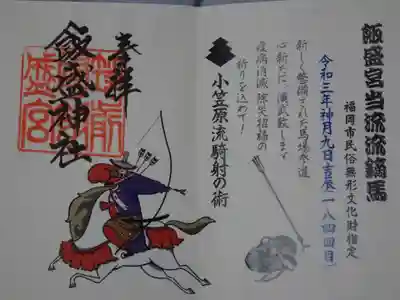 飯盛宮当流流鏑馬
福岡市民俗無形文化財指定
令和三年神月九日吉辰(一八四回目)
新しく整備された馬場参道
心新たに演武致します
疫病消滅除災招福の
祈りを込めて!
小笠原流騎射の術
奉拝
飯盛神社
筑前
飯盛宮